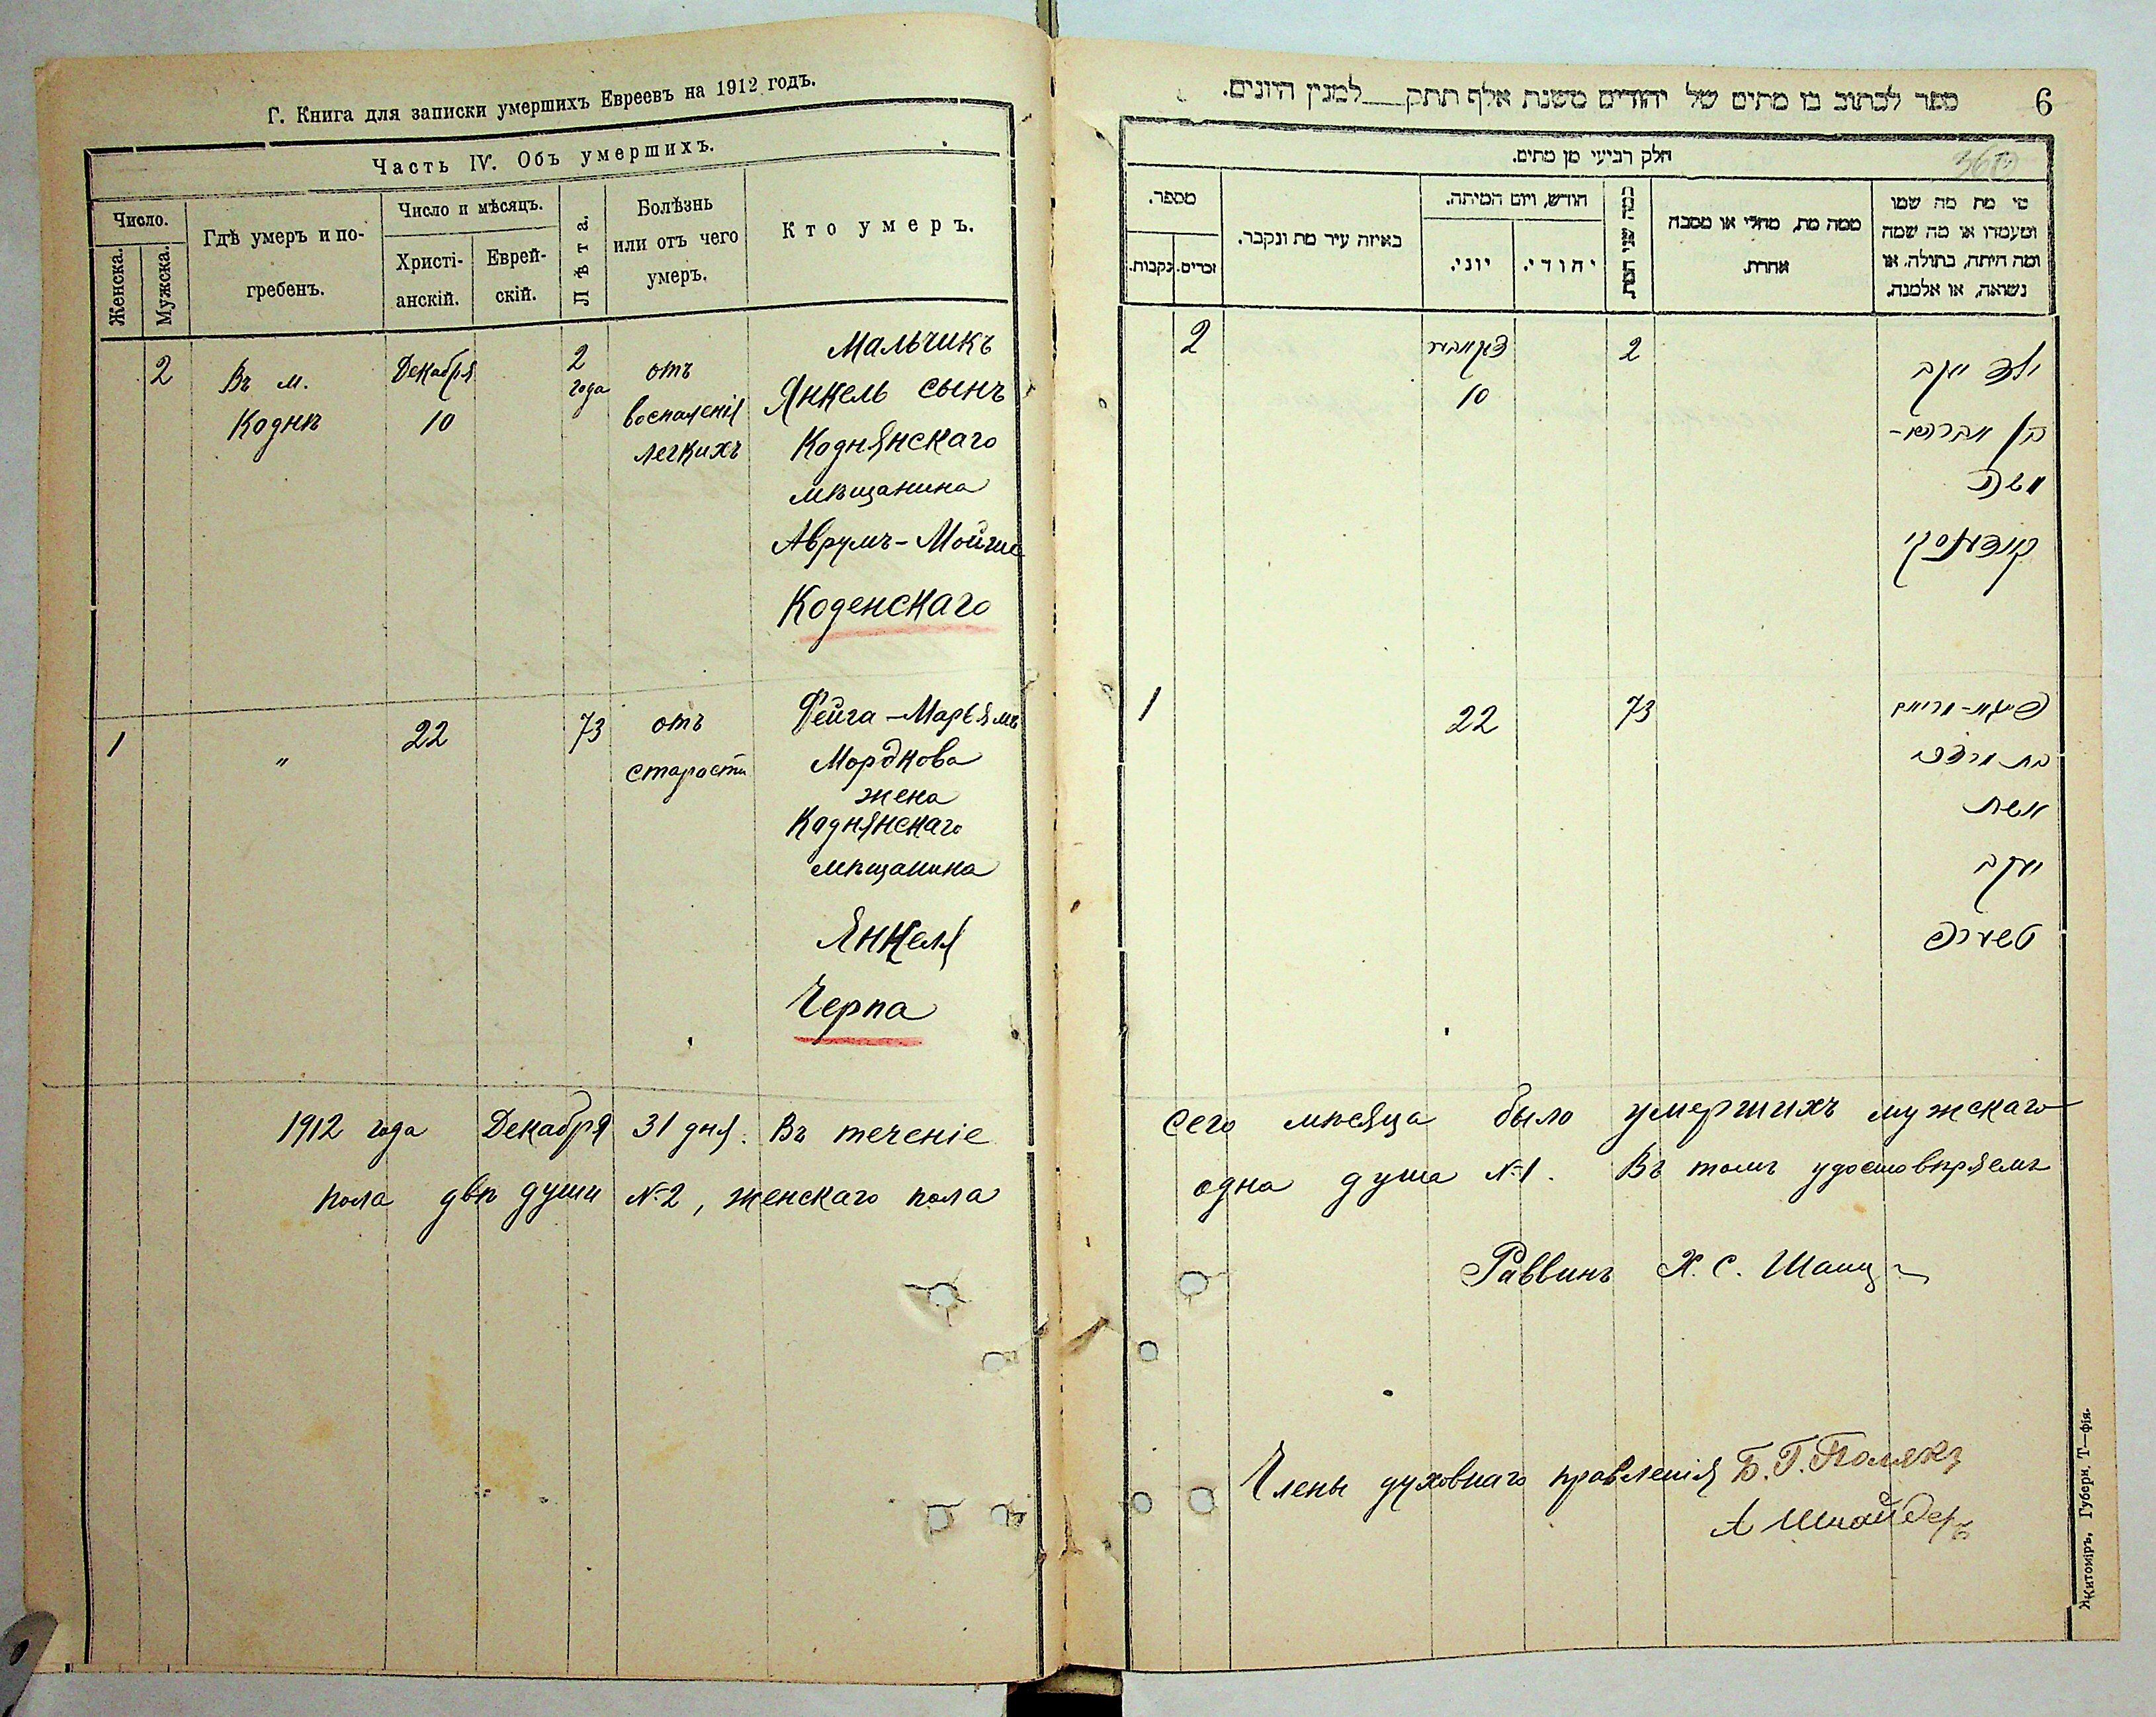 Г. Книга для записки умершихъ Евреевъ на 1912 годъ.
Часть IV. Объ умершихъ.
Число.
Женска.
Мужска.
Гдѣ умеръ и по-
гребенъ.
Число и мѣсяцъ.
Христі-
анскій.
Еврей-
скій.
Лѣта.
Болѣзнь
или отъ чего
умеръ.
Кто умеръ.
2
Въ м.
Коднѣ
Декабря
10
2
года
отъ
воспаленія
легкихъ
Мальчикъ
Янкель сынъ
Коднянскаго
мѣщанина
Аврумъ-Мойше
Коденскаго
1
"
22
73
отъ
старости
Фейга-Марьямъ
Мордкова
жена
Коднянскаго
мѣщанина
Янкеля
Черпа
1912 года Декабря 31 дня. Въ теченіе
пола двѣ души №2, женскаго пола
6
ספר לכתוב בו מתים של יהודים משנת אלף תתק למנין היונים.
חלק רביעי מן מתים.
מספר.
נקבות.
זכרים.
באיזה עיר מת ונקבר.
חודש, ויום המיתה.
יוני.
יהודי.
כמה שני המת
ממה מת, מחלי או מסבה
אחרת.
מי מת מה שמו
ומעמדו או מה שמה
ומה היתה, בתולה, או
נשואה, או אלמנה.
2
דעקאבער
10
2
ילד יעקב
בן אברהם-
משה
קודענסקי
1
22
73
פייגא-מרים
בת מרדכי
אשת
יעקב
טשערפ
сего мѣсяца было умершихъ мужскаго
одна душа №1. Въ томъ удостовѣряемъ
Раввинъ Х. С. Шаиц
Члены духовнаго правленія Б. Г. Полякъ
А Шнайдеръ
Житоміръ, Губерн. Т—фія.